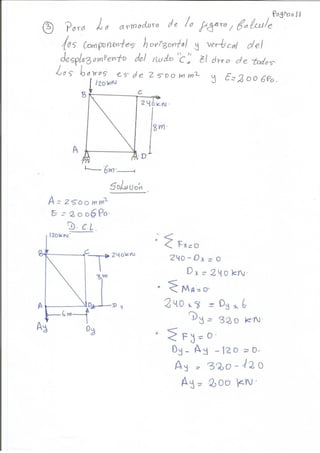 Página 11
⑤ Para La armadura de la figura, Calcule
los Componentes horizontal y vertical del
desplazamiento del nudo "C". El área de todas
Las barras es de 2500 mm² y E=200 GPa.
120kN
B C
240kN.
8m
A D
6m
Solución
A = 2500 mm²
E = 200GPa.
D.C.L.
120kN
B C 240kN
8m
A D Dx
6m
Ay Dy
• Σ Fx=0
240-Dx = 0
Dx = 240kN.
• Σ MA=0
240 x 8 = Dy x 6
Dy = 320 kN
• Σ Fy=0.
Dy - Ay -120 = 0.
Ay = 320-120
Ay = 200 kN.